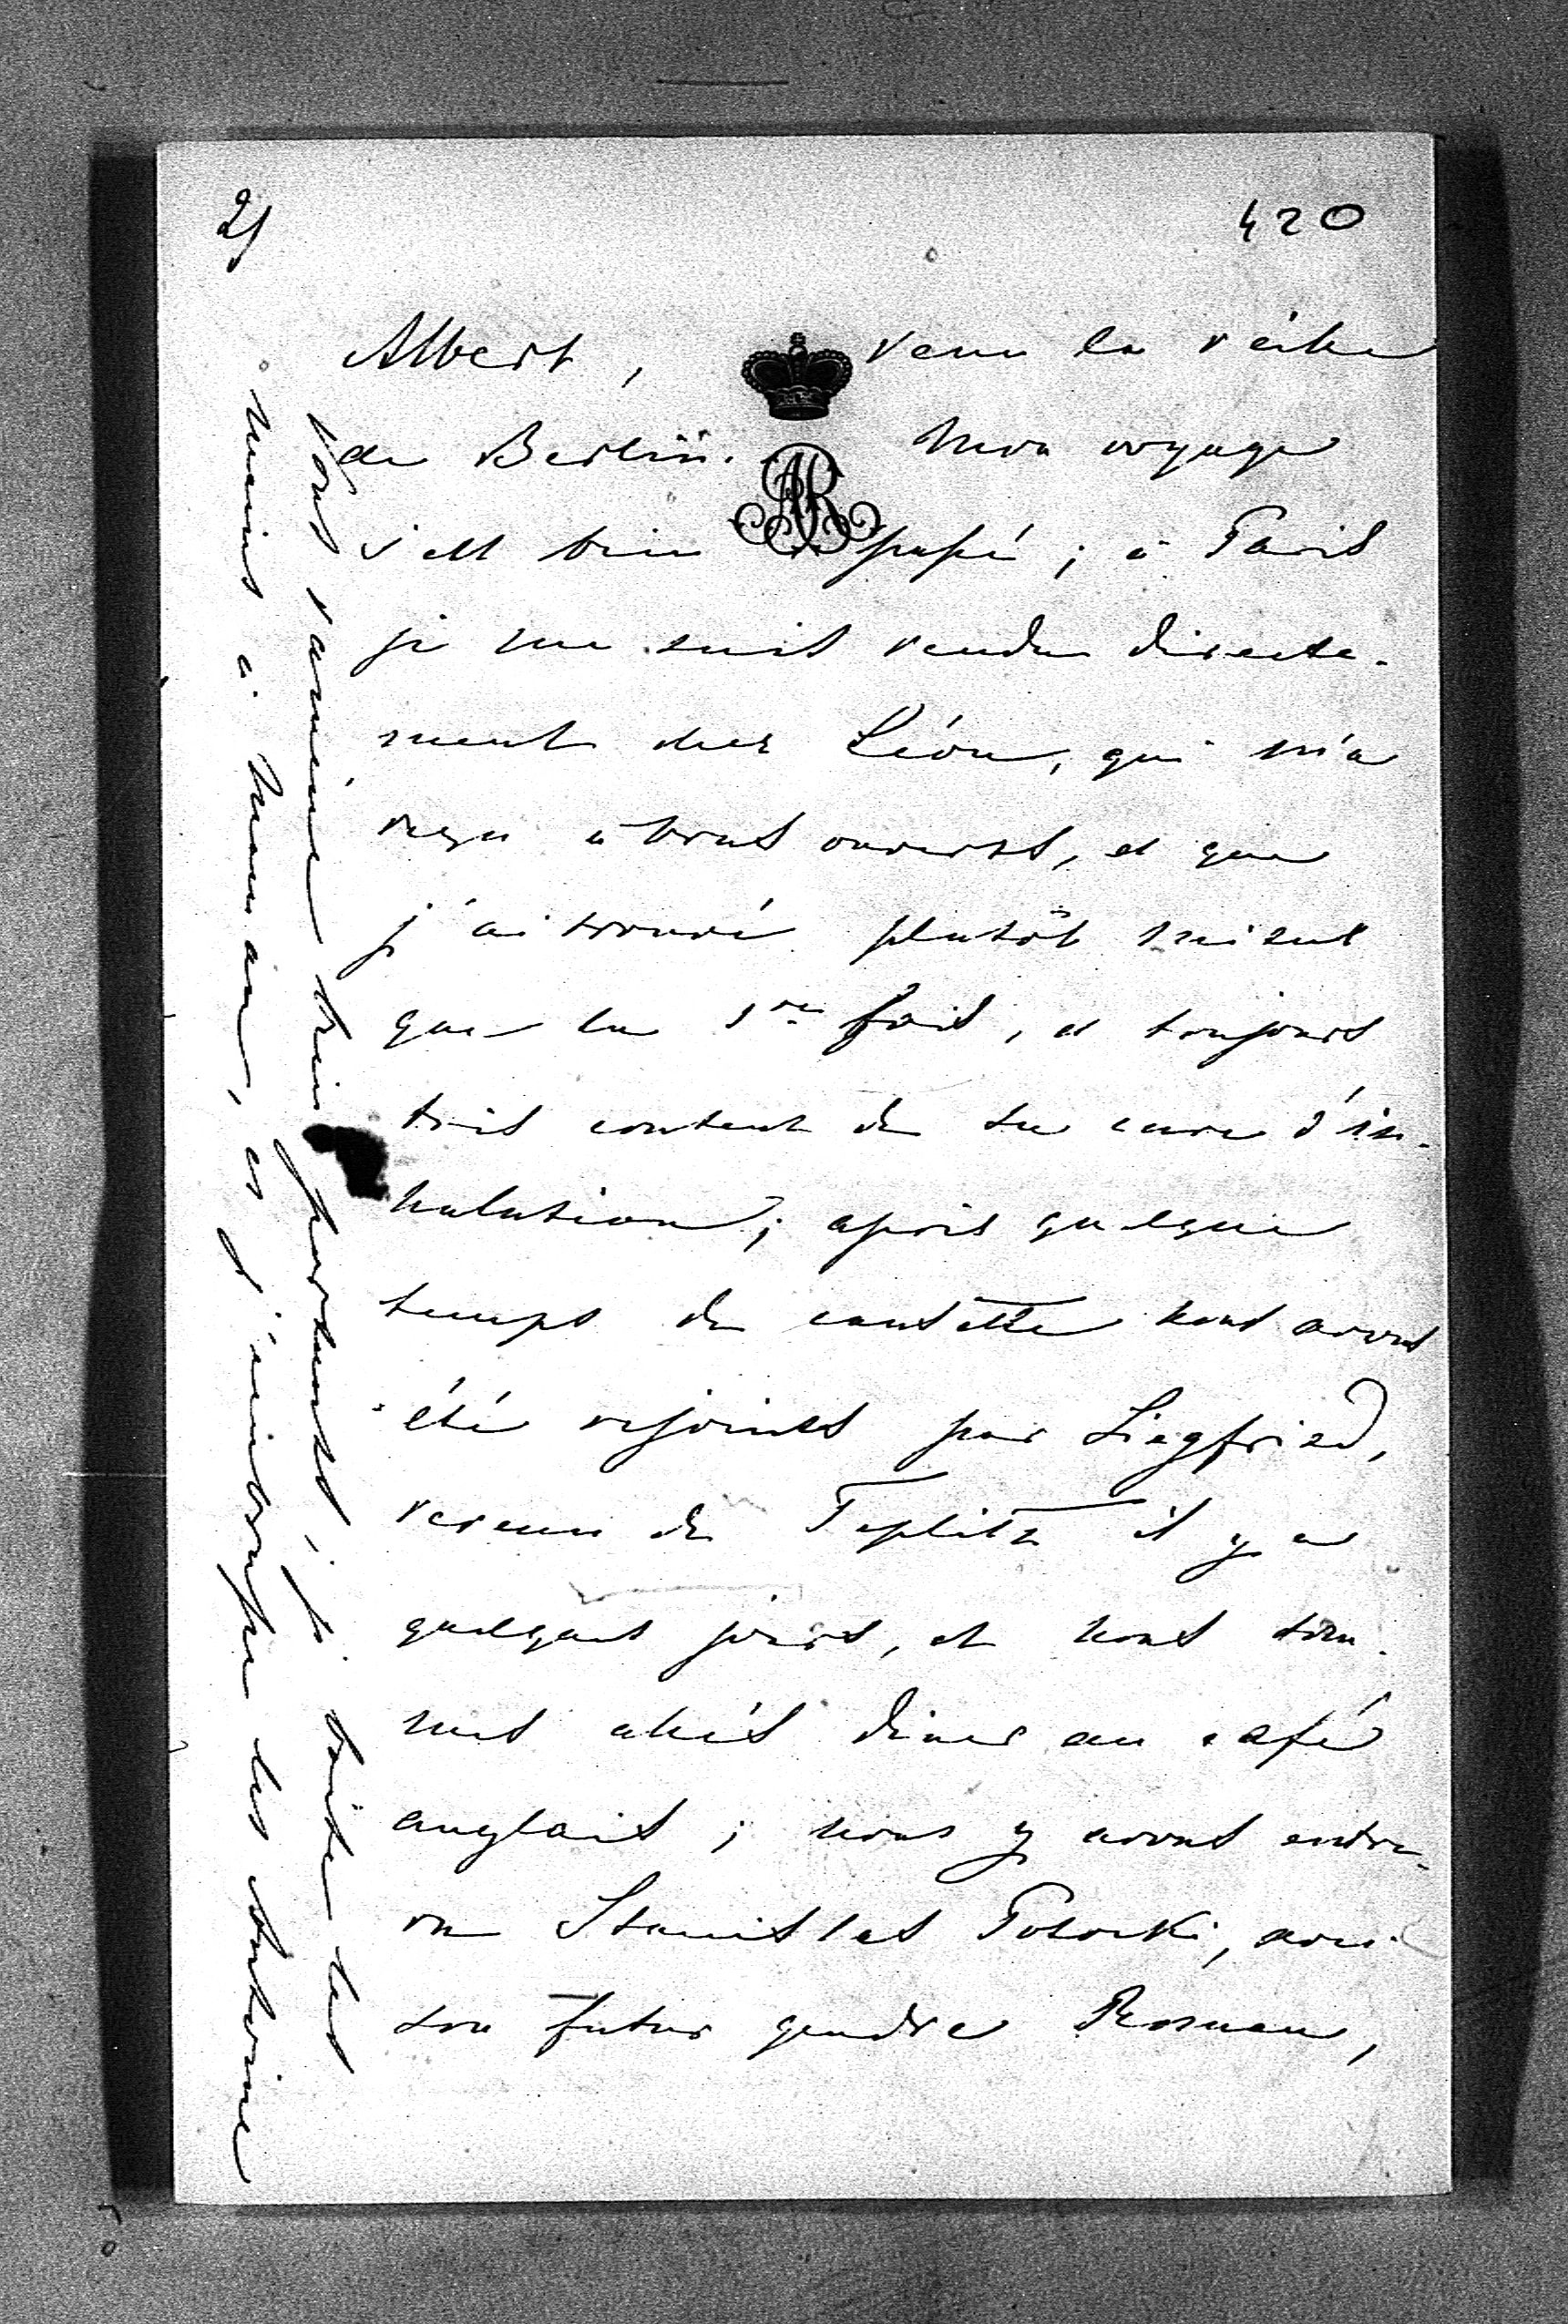 2/
420
Albert, venu la veille
de Berlin. Mon voyage
s'est bien passé; à Paris
je me suis rendu directe-
ment chez Léon, qui m'a
reçu à bras ouverts, et que
j'ai trouvé plutôt mieux
que la 1re fois, et toujours
très content de sa cure d'in-
halation; après quelque
temps de causette nous avons
été rejoints par Siegfried,
revenu de Teplitz il y a
quelques jours, et nous som-
mes allés dîner au café
anglais; nous y avons entre-
vu Stanislas Potocki, avec
son futur gendre
sont arrivé bien portants; je baise les
mains à Maman, et j'embrasse les